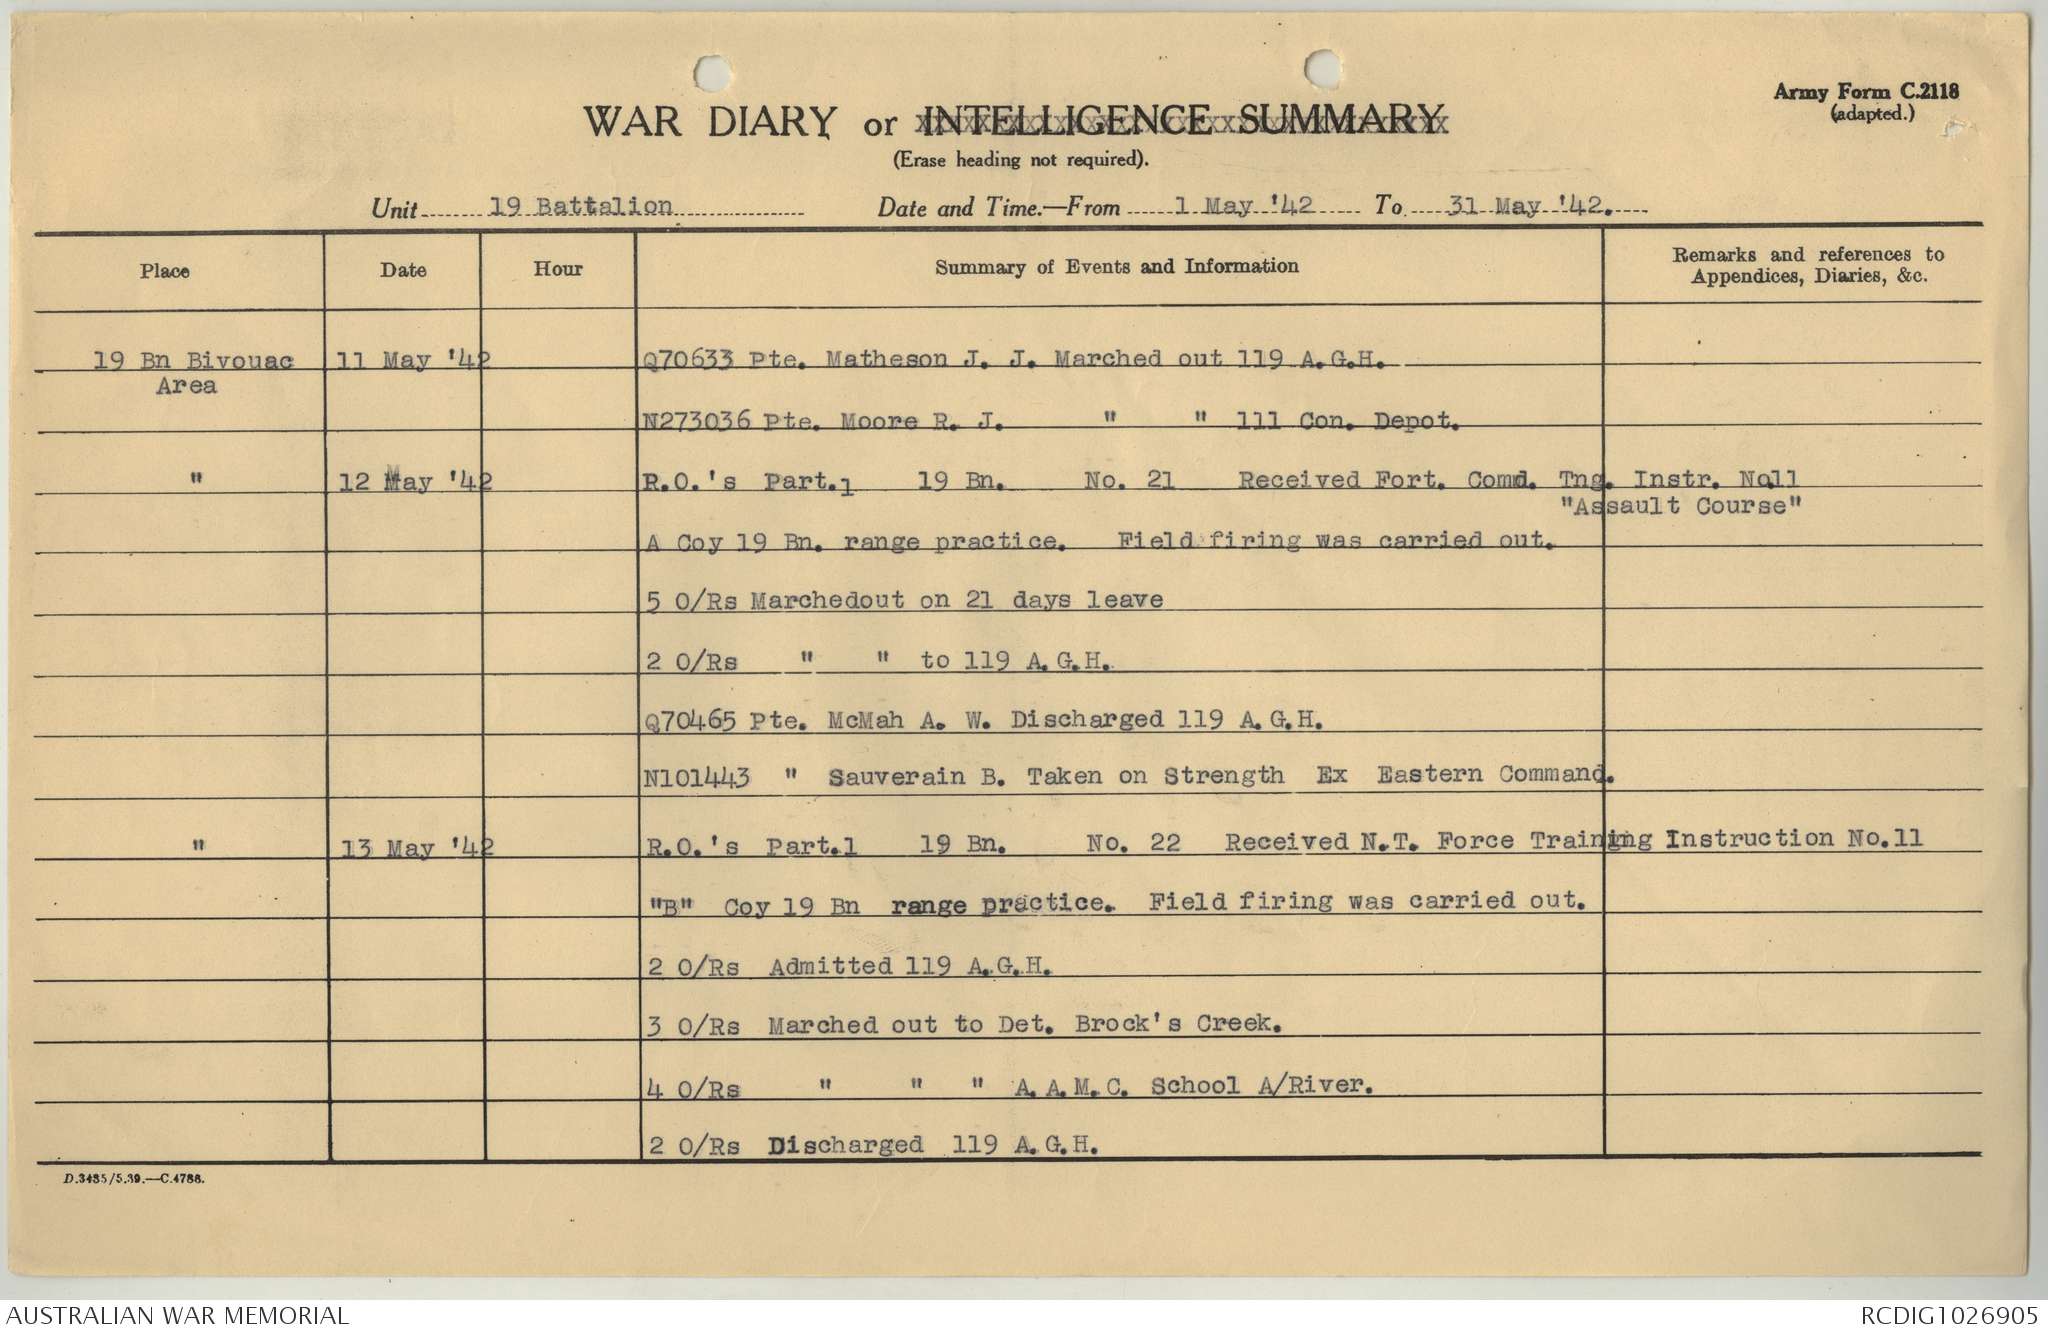 Army Form C.2118
(adapted.)
WAR DIARY or INTELLIGENCE SUMMARY
(Erase heading not required).
Unit 19 Battalion Date and Time.—From 1 May '42 To 31 May '42.
Place Date Hour Summary of Events and Information Remarks and references to
Appendices, Diaries, &c.
19 Bn Bivouac 11 May '42 Q70633 Pte. Matheson J. J. Marched out 119 A.G.H.
Area
N273036 Pte. Moore R. J. " " 111 Con. Depot.
" 12 May '42 R.O.'s Part.1 19 Bn. No. 21 Received Fort. Comd. Tng. Instr. No.11
"Assault Course"
A Coy 19 Bn. range practice. Field firing was carried out.
5 O/Rs Marchedout on 21 days leave
2 O/Rs " " to 119 A.G.H.
Q70465 Pte. McMah A. W. Discharged 119 A.G.H.
N101443 " Sauverain B. Taken on Strength Ex Eastern Command.
" 13 May '42 R.O.'s Part.1 19 Bn. No. 22 Received N.T. Force Training Instruction No.11
"B" Coy 19 Bn range practice. Field firing was carried out.
2 O/Rs Admitted 119 A.G.H.
3 O/Rs Marched out to Det. Brock's Creek.
4 O/Rs " " " A.A.M.C. School A/River.
2 O/Rs Discharged 119 A.G.H.
D.3485/5.39.—C.4788.
AUSTRALIAN WAR MEMORIAL RCDIG1026905